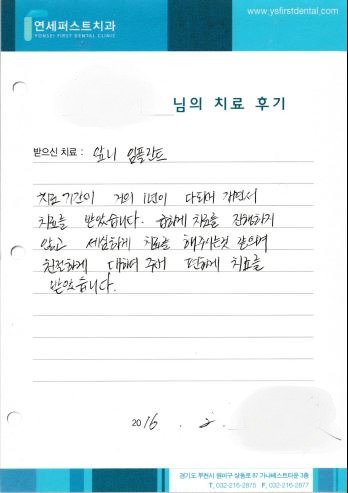 www.ysfirstdental.com
연세퍼스트치과
YONSEI FIRST DENTAL CLINIC
님의 치료 후기
받으신 치료 : 앞니 임플란트
치료기간이 거의 1년이 다되어 가면서
치료를 받았습니다. 급하게 치료를 진행하지
않고 세심하게 치료를 해주시는것 같으며
친절하게 대하여 주셔 편하게 치료를
받았습니다.
2016 . 2 .
경기도 부천시 원미구 상동로 87 가나베스트타운 3층
T. 032-216-2875 F. 032-216-2877